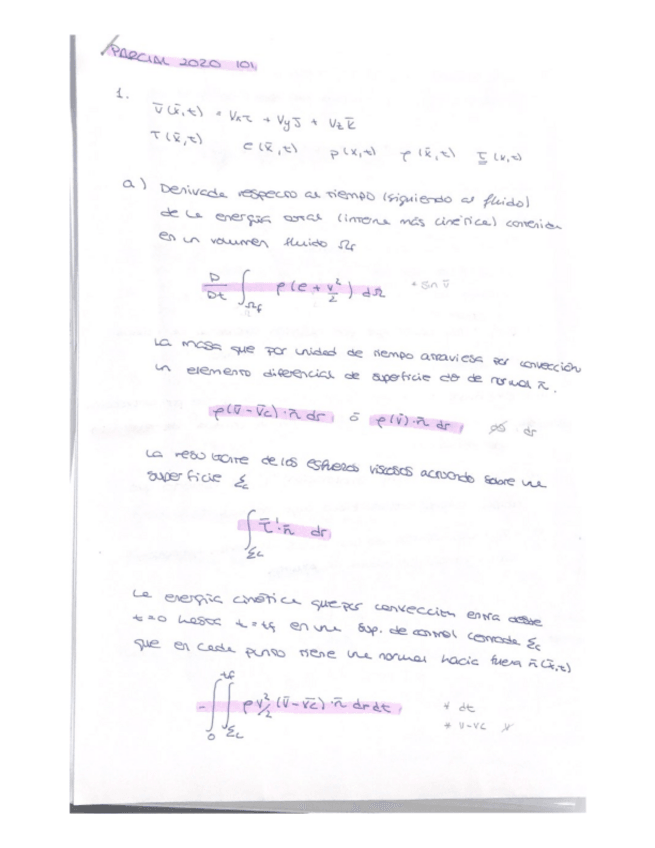 PARCIAL 2020 101
1.
v̄(x̄,t) = Vx ī + Vy j̄ + Vz k̄
T(x̄,t) e(x̄,t) p(x,t) ρ(x̄,t) τ(x,t)
a) Derivada respecto al tiempo (siguiendo al fluido)
de la energía total (interna más cinética) contenida
en un volumen fluido Ωf
D/Dt ∫Ωf ρ(e + v²/2) dΩ
La masa que por unidad de tiempo atraviesa por convección
un elemento diferencial de superficie dσ de normal n̄.
ρ(v̄ - v̄c)·n̄ dσ ó ρ(v̄)·n̄ dσ dσ
La resultante de los esfuerzos viscosos actuando sobre una
superficie Σc
∫Σc τ̄'·n̄ dσ
La energía cinética que por convección entra desde
t=0 hasta t=tf en una sup. de control cerrada Σc
que en cada punto tiene una normal hacia fuera n̄(x̄,t)
- ∫0^tf ∫Σc ρ v²/2 (v̄ - v̄c)·n̄ dσ dt * dt
* v-vc